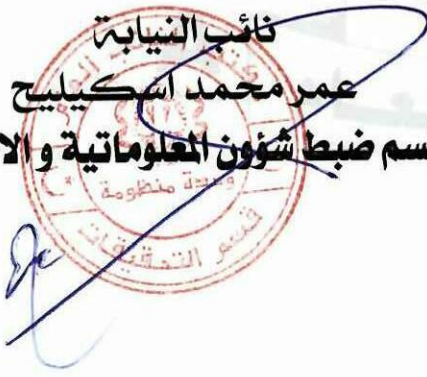 نائب النيابة
عمر محمد اسكيليح
سم ضبط شؤون المعلوماتية و الا
وحدة منظومة
قسم التحقيقات